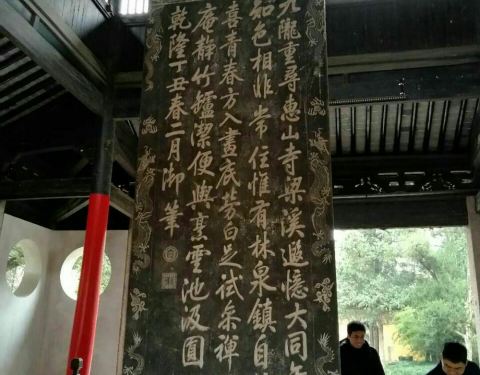 九隴重尋惠山寺梁溪遐憶大同年
知色相非常住惟有林泉鎮自
喜青春方入畫底勞白足試參禪
庵靜竹罏潔便與烹雲池汲圓
乾隆丁丑春二月御筆